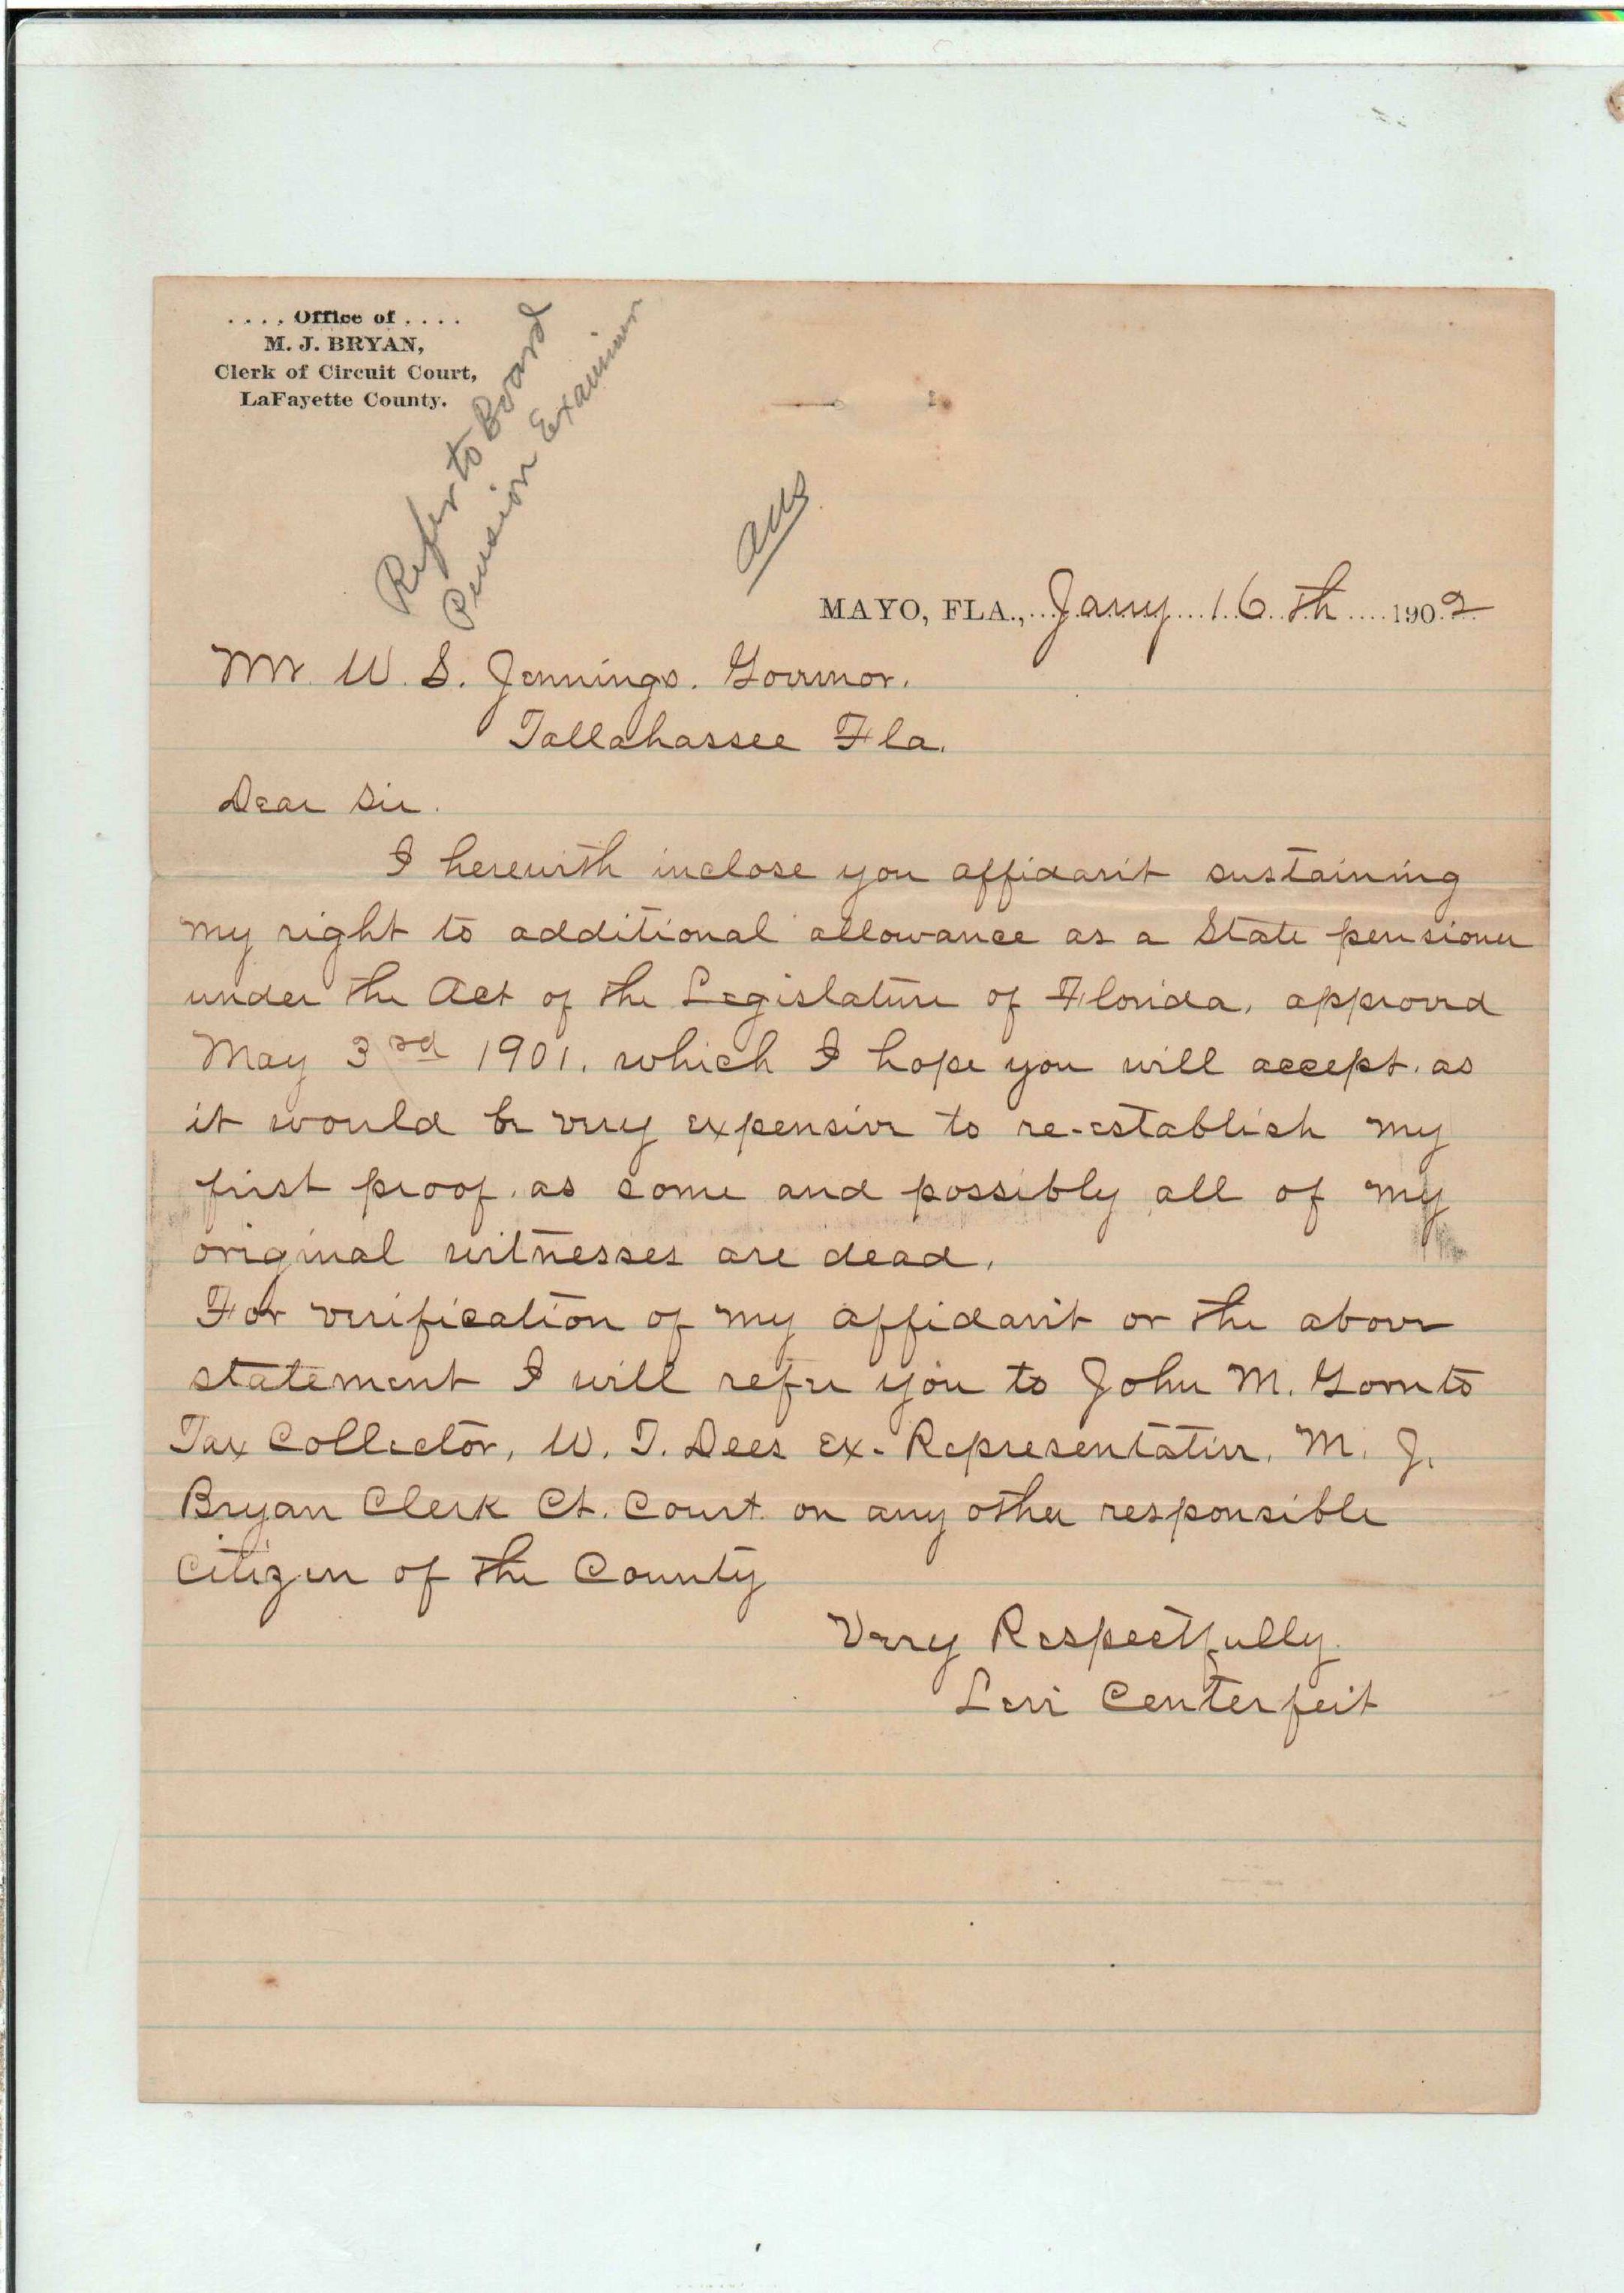 .... Office of ....
M. J. BRYAN,
Clerk of Circuit Court,
LaFayette County.
Refer to Board
Pension Examiner
ans
MAYO, FLA., Jany 16th 1902
Mr. W. S. Jennings. Governor.
Tallahassee Fla.
Dear Sir.
I herewith inclose you affidavit sustaining
my right to additional allowance as a State pensioner
under the Act of the Legislature of Florida, approved
May 3rd 1901. which I hope you will accept. as
it would be very expensive to re-establish my
first proof. as some and possibly all of my
original witnesses are dead.
For verification of my affidavit or the above
statement I will refer you to John M. Gornto
Tax Collector, W. T. Dees Ex-Representative, M. J.
Bryan Clerk Ct. Court. or any other responsible
Citizen of the County
Very Respectfully.
Levi Centerfeit